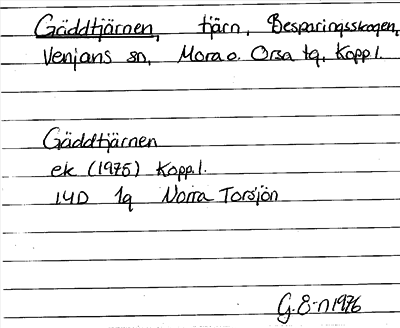 Gäddtjärnen, tjärn, Besparingsskogen,
Venjans sn, Mora o. Orsa tg, Koppl.
Gäddtjärnen
ek (1975) Koppl.
14D 1q Norra Torsjön
G. E-n 1976